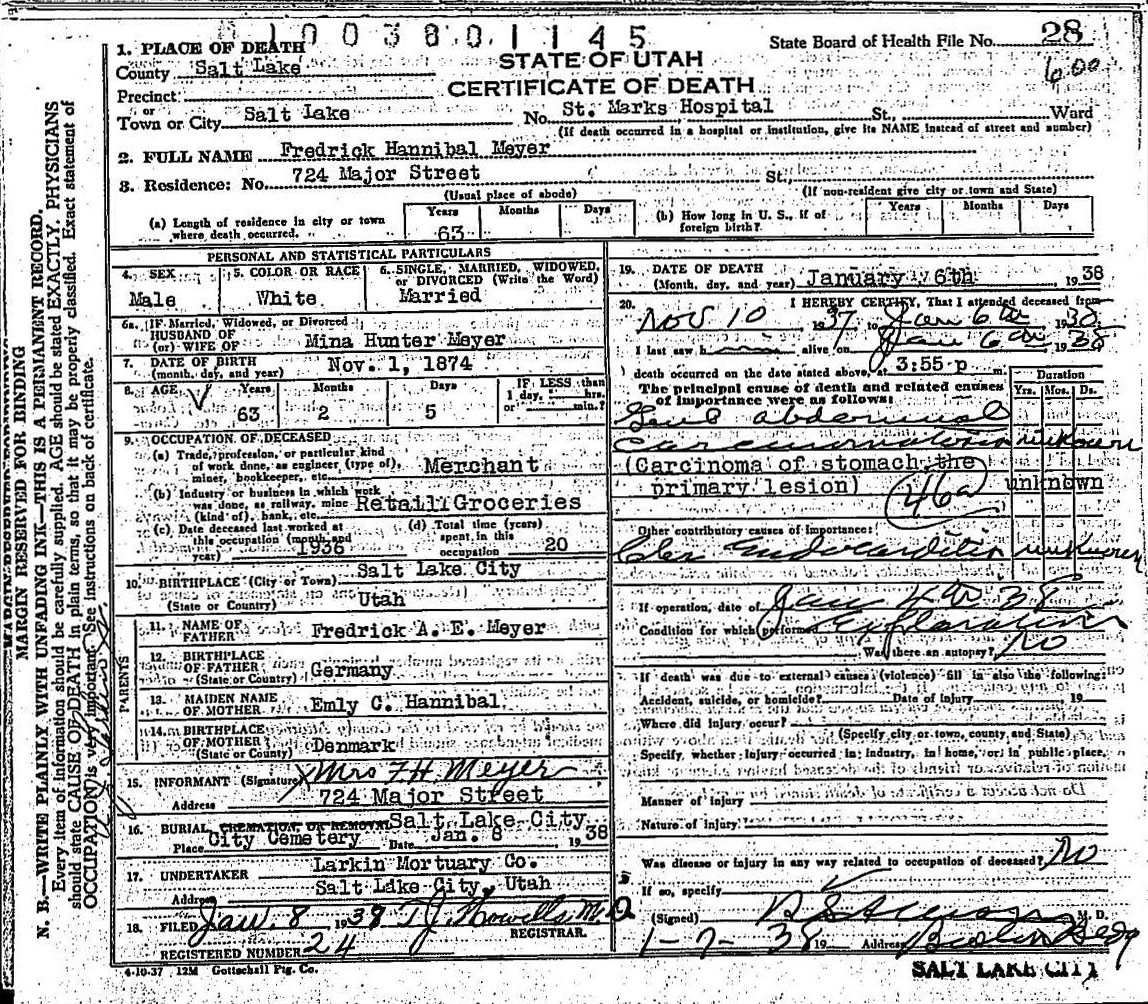 0 1 0 0 3 8 0 1 1 4 5
State Board of Health File No. 28
600
1. PLACE OF DEATH
STATE OF UTAH
County Salt Lake
CERTIFICATE OF DEATH
Precinct
or
Town or City Salt Lake No. St. Marks Hospital St., Ward
(If death occurred in a hospital or institution, give its NAME instead of street and number)
2. FULL NAME Fredrick Hannibal Meyer
3. Residence: No. 724 Major Street St.,
(Usual place of abode) (If non-resident give city or town and State)
(a) Length of residence in city or town where death occurred. Years 63 Months Days
(b) How long in U. S., if of foreign birth? Years Months Days
PERSONAL AND STATISTICAL PARTICULARS
4. SEX Male
5. COLOR OR RACE White
6. SINGLE, MARRIED, WIDOWED, or DIVORCED (Write the Word) Married
6a. IF Married, Widowed, or Divorced
HUSBAND OF
(or) WIFE OF Mina Hunter Meyer
7. DATE OF BIRTH
(month, day, and year) Nov. 1, 1874
8. AGE Years 63 Months 2 Days 5 IF LESS than 1 day, hrs. or min.?
9. OCCUPATION OF DECEASED
(a) Trade, profession, or particular kind of work done, as engineer (type of), miner, bookkeeper, etc. Merchant
(b) Industry or business in which work was done, as railway, mine (kind of), bank, etc. Retail Groceries
(c) Date deceased last worked at this occupation (month and year) 1936
(d) Total time (years) spent in this occupation 20
10. BIRTHPLACE (City or Town) Salt Lake City
(State or Country) Utah
PARENTS
11. NAME OF FATHER Fredrick A. E. Meyer
12. BIRTHPLACE OF FATHER (State or Country) Germany
13. MAIDEN NAME OF MOTHER Emly C. Hannibal
14. BIRTHPLACE OF MOTHER (State or County) Denmark
15. INFORMANT (Signature) X Mrs F. H. Meyer
Address 724 Major Street
16. BURIAL, CREMATION, OR REMOVAL Salt Lake City
Place City Cemetery Date Jan. 8 1938
17. UNDERTAKER Larkin Mortuary Co.
Address Salt Lake City, Utah
18. FILED Jan. 8 1938 T. J. Howells M.D.
REGISTRAR.
REGISTERED NUMBER 24
4-10-37 12M Gottschall Ptg. Co.
19. DATE OF DEATH
(Month, day, and year) January 6th, 1938
20. I HEREBY CERTIFY, That I attended deceased from
Nov 10 1937 to Jan 6th 1938
I last saw h alive on Jan 6th 1938
death occurred on the date stated above, at 3:55 p m.
The principal cause of death and related causes of importance were as follows: Duration Yrs. Mos. Ds.
Genl abdominal
carcinomatosis unknown
(Carcinoma of stomach the
primary lesion) unknown
46a
Other contributory causes of importance:
Endocarditis unknown
If operation, date of Jan 4th 38
Condition for which performed Exploration
Was there an autopsy? No
If death was due to external causes (violence) fill in also the following:
Accident, suicide, or homicide? Date of injury 19
Where did injury occur?
(Specify city or town, county, and State)
Specify whether injury occurred in industry, in home, or in public place,
Manner of injury
Nature of injury
Was disease or injury in any way related to occupation of deceased? No
If so, specify
(Signed) M. D.
1-7-38 19 Address Boston Bldg
SALT LAKE CITY
MARGIN RESERVED FOR BINDING
N. B.—WRITE PLAINLY WITH UNFADING INK—THIS IS A PERMANENT RECORD.
Every item of information should be carefully supplied. AGE should be stated EXACTLY. PHYSICIANS
should state CAUSE OF DEATH in plain terms, so that it may be properly classified. Exact statement of
OCCUPATION is very important. See instructions on back of certificate.